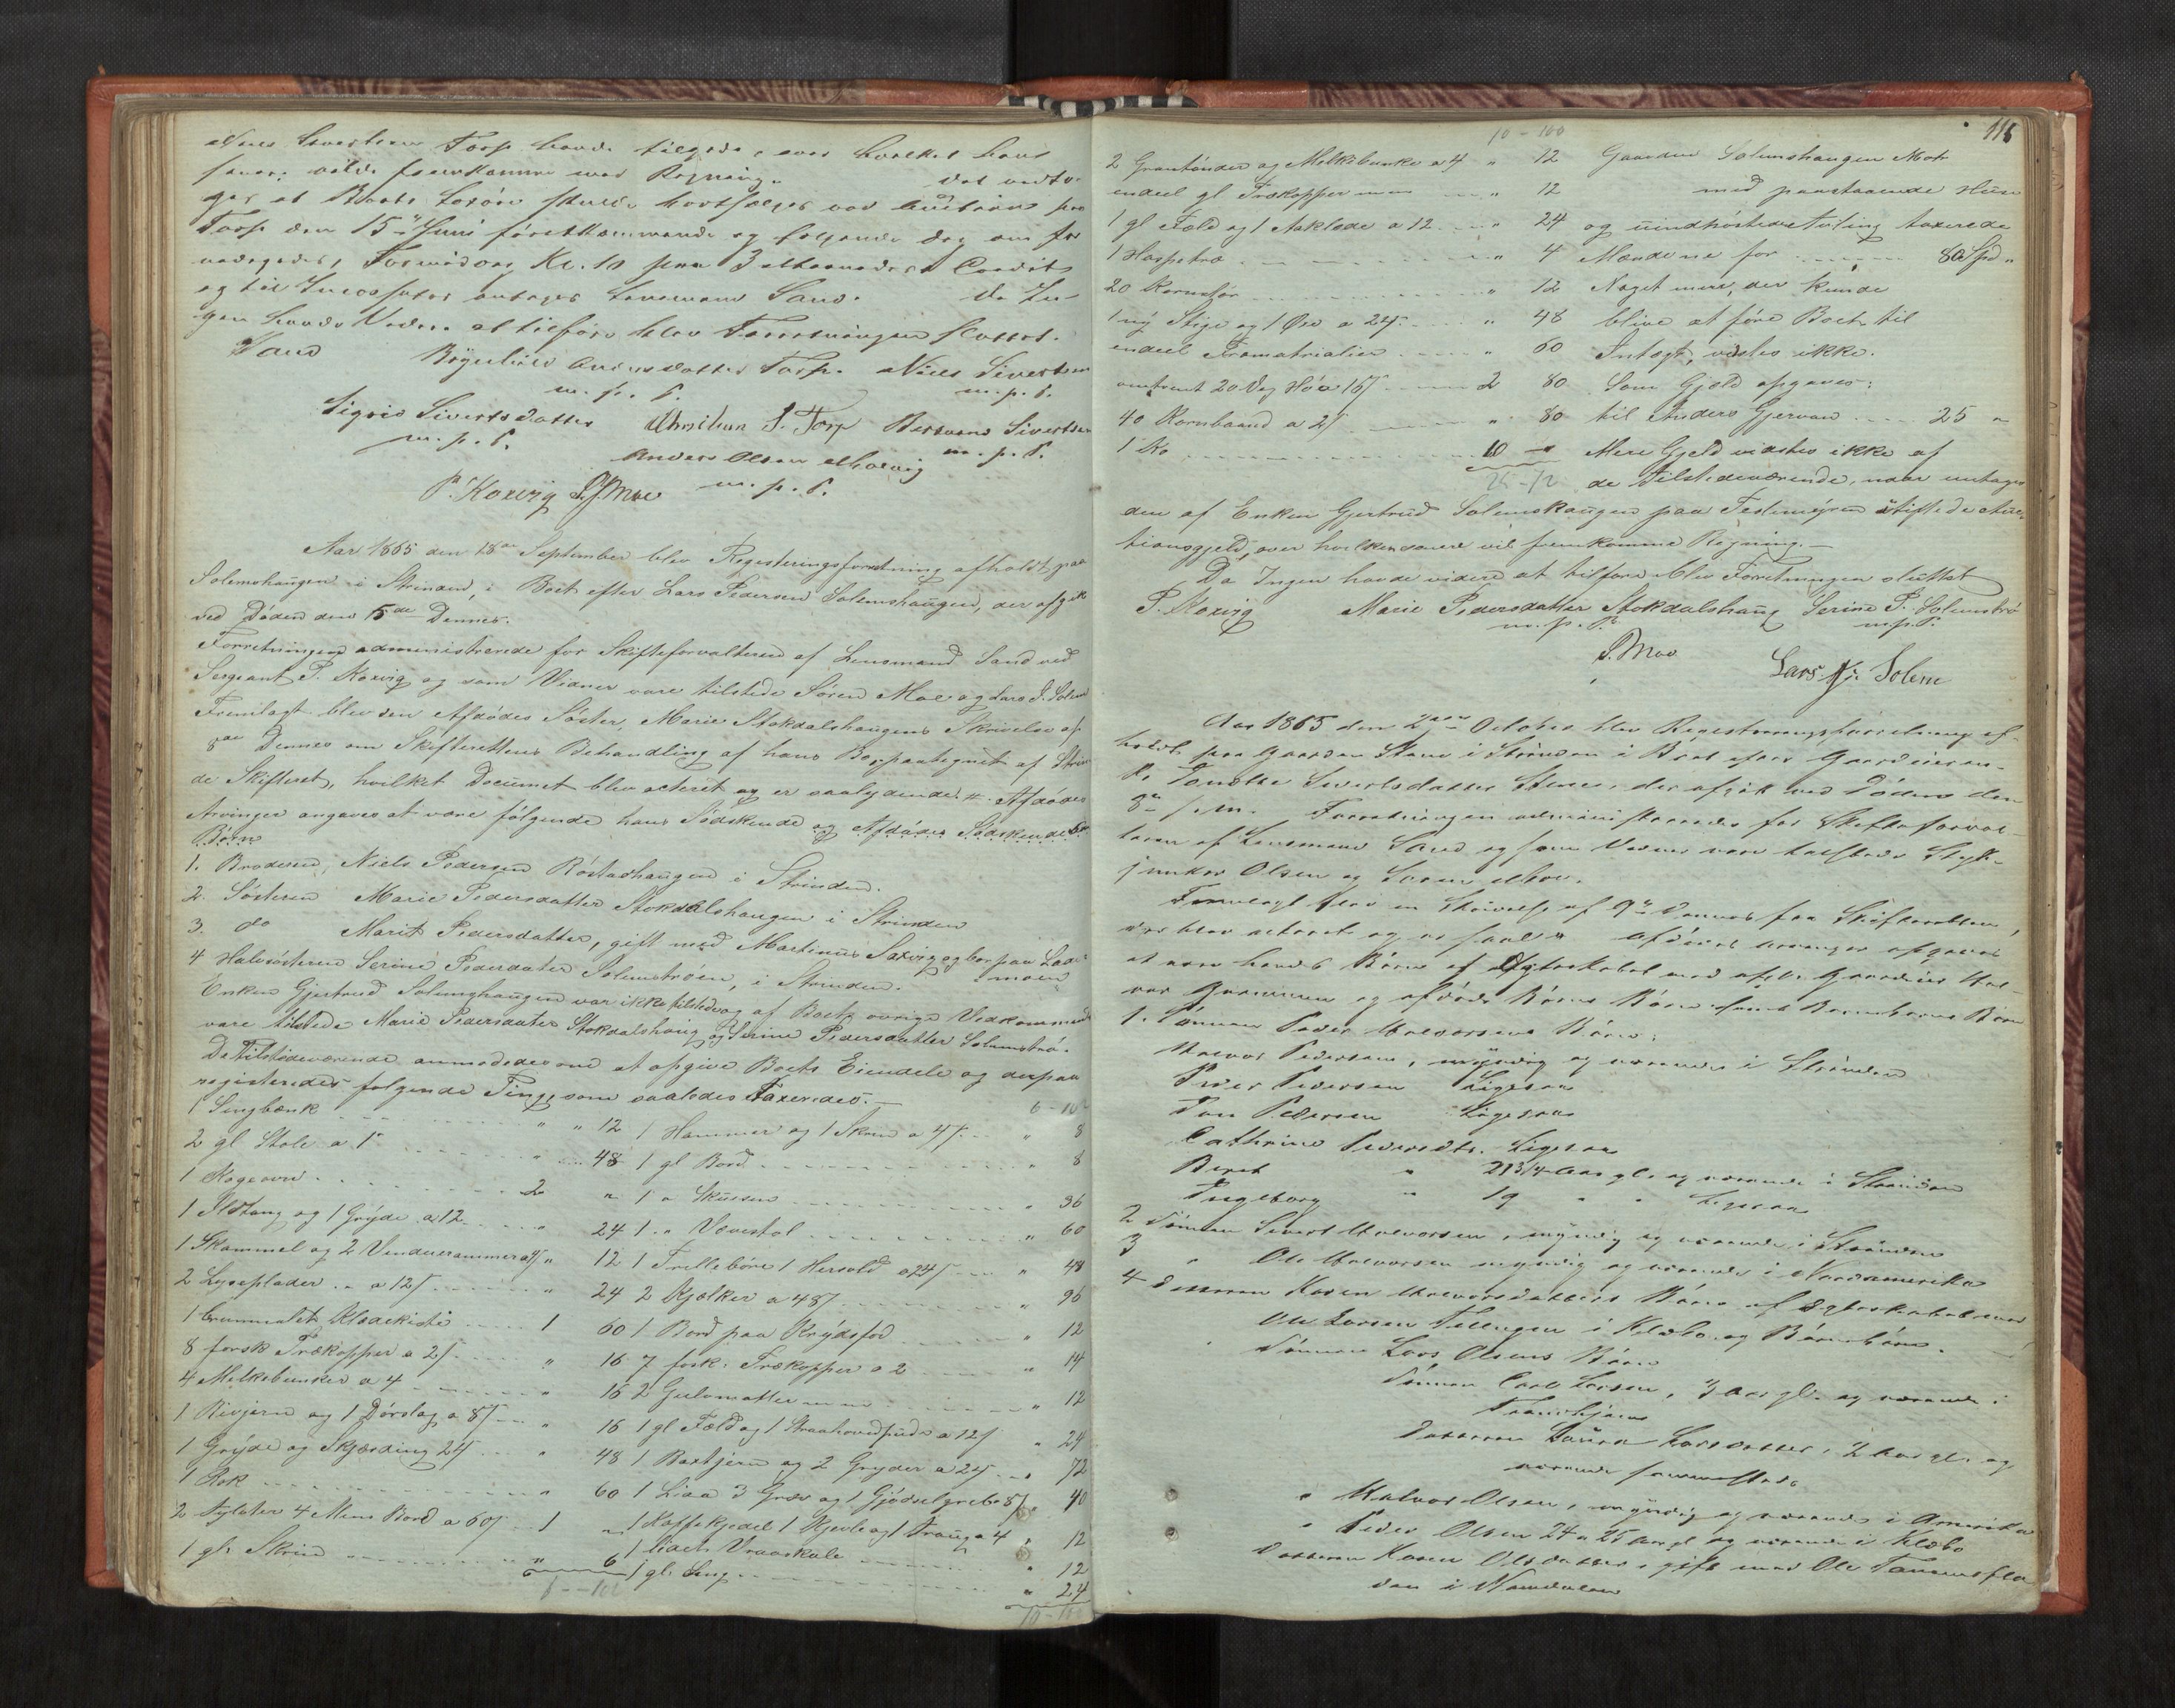 Torp havde tilgode, over hvilket hans
vilde fremkomme med Regning. Det vedto-
ges at Boets Løsøre skulde bortsælges ved Auction paa
Torp den 15de Juni førstkommende og følgende Dag om for
Formiddag Kl. 10 paa 3 Maaneders Credit
og til Incassator antoges Lensmand Sand. Da In-
gen havde Videre at tilføre blev Forretningen sluttet.
Sand Andersdatter Torp. Niels Sivertsen
m. p. P. m. p. P.
Sigrid Sivertsdatter S. Torp Sivertsen
m. p. P. m. p. P.
Anders Olsen
m. p. P.
P. Koxvig S. Moe
Aar 1865 den 18de September blev Registreringsforretning afholdt paa
Solemshaugen i Strinden, i Boet efter Lars Pedersen Solemshaugen, der afgik
ved Døden den 5de Dennes.
Forretningen administrerede for Skifteforvalteren af Lensmand Sand ved
Sergeant P. Koxvig og som Vidner vare tilstede Søren Moe og Lars J. Solem
Fremlagt blev den Afdødes Søster, Marie Stokdalshaugens Skrivelse af
8de Dennes om Skifterettens Behandling af hans Bo, paategnet af Strin-
de Skifteret, hvilket Document blev acteret og er saalydende #. Afdødes
Arvinger angaves at være følgende hans Sødskende og Afdødes Sødskendes
Børn
1. Broderen, Niels Pedersen Rostadhaugen i Strinden.
2. Søsteren Marie Pedersdatter Stokdalshaugen i Strinden
3. do Marit Pedersdatter, gift med Martinus Saxvig og bor paa Lade-
moen
4 Halvsøsteren Serine Pedersdatter Solemstrøen, i Strinden.
Enken Gjertrud Solemshaugen var ikke tilstede og af Boets øvrige Vedkommende
vare tilstede Marie Pedersdatter Stokdalshaug og Serine Pedersdatter Solemstrø.
De Tilstedeværende anmodedes om at opgive Boets Eiendele og derpaa
registeredes følgende Ting som saaledes Taxeredes.—
6-102
1 Sengbænk " " 12 1 Hammer og 1 Skrue a 4/ " 8
2 gl Stole a 1" " 48 1 gl Bord " 8
1 Kogeovn 2 " 1 " Skuesen " 36
1 Ildtang og 1 Gryde a 12 " 24 1 " Vævestol " 60
1 Skammel og 2 Vinduesrammer a 4/ " 12 1 Trillebøre 1 Hersold a 24/ " 48
2 Lyseplader a 12/ " 24 2 Kjælker a 48/ " 96
1 brunmalet Klædekiste 1 60 1 Bord paa Krydsfod " 12
8 forsk Trækopper a 2/ " 16 7 forsk. Trækopper a 2 " 14
4 Melkebunker a 4 " 16 2 Gulvmatter " 12
1 Rivjern og 1 Dørslag a 8/ " 16 1 gl Fæld og 1 Straahovedpude a 12/ " 24
1 Gryde og Skjærding 24/ " 48 1 Baxtjern og 2 Gryder a 24/ " 72
1 Rok " 60 1 Liaa 3 Græv og 1 Gjødselgreb a 8/ " 40
2 4 Bord a 60/ 1 " 1 Kaffekjedel 1 Kjevle og 1 Traug a 4 " 12
1 gl. Skrin " 6 1 " 12
6-102 1 gl. Seng " 24
10-100
10-100 118
2 Grautønder og Melkebunke a 4 " 12 Gaarden Solemshaugen
endeel gl Trækopper " 12 med paastaaende Huse
1 gl Fæld og 1 Aaklæde a 12 " 24 og indhøstede Avling taxerede
1 Haspetræ " 4 Mændene for 80 Spd "
20 Kornstør " 12 Noget mere, der kunde
1 ny Stige og 1 Øxe a 24 " 48 blive at føre Boet til
endeel Træmatrialier " 60 Indtægt, vidstes ikke.
omtrent 20 Vog Hø a 16/ 2 80 Som Gjæld opgaves:
40 Kornbaand a 2/ " 80 til Anders Gjervan 25 "
1 Ko 10 " Mere Gjeld vidstes ikke af
26-12 de tilstedeværende, naar untages
den af Enken Gjertrud Solemshaugen paa stiftede Auc-
tionsgjeld, over hvilken vil fremkomme Regning.—
Da Ingen havde videre at tilføre blev Forretningen sluttet
P. Koxvig Marie Pedersdatter Stokdalshaug Serine P. Solemstrø
m. p. P. m. p. P.
S. Moe Lars J. Solem
Aar 1865 den 2den October blev Registreringsforretning af-
holdt paa Gaarden Stene i Strinden i Boet efter Gaardmands-
Sivertsdatter Stene, der afgik ved Døden den
8de f. M. Forretningen administreredes for Skifteforval-
teren af Lensmand Sand og som Vidner vare tilstede
junker Olsen og Søren Moe.
Fremlagt blev en Skrivelse af 9de Dennes fra Skifteretten,
der blev acteret og er saal # Afdødes Arvinger opgaves
at være hendes Børn af Ægteskabet med afdøde Gaardmand Hal-
vor og afdøde Børns Børn samt Barnebarns Børn
1. Sønnen Peder Halvorsens Børn:
Halvor Pedersen, myndig og værende i Strinden
Peder Pedersen Ligesaa
Jon Pedersen Ligesaa
Cathrine Pedersdtr. Ligesaa
Beret " 21 3/4 Aar gl. og værende i Strinden
Ingeborg " 19 " " Ligesaa
2 Sønnen Sivert Halvorsen, myndig og værende i Strinden
3 " Ole Halvorsen myndig og værende i Nordamerika
4 Datteren Karen Halvorsdatters Børn af Ægteskabet med
Ole Larsen Tellugen i Klæbo og Børnebørn.
Sønnen Lars Olsens Børn
Sønnen Carl Larsen, 3 Aar gl. og værende i
Trondhjem
Datteren Laura Larsdatter, 2 Aar gl. og
værende sammesteds
" Halvor Olsen, myndig og værende i Amerika
" Peder Olsen 24 a 25 Aar gl og værende i Klæbo
Datteren Karen Olsdatter, gift med Ole
den i Namdalen